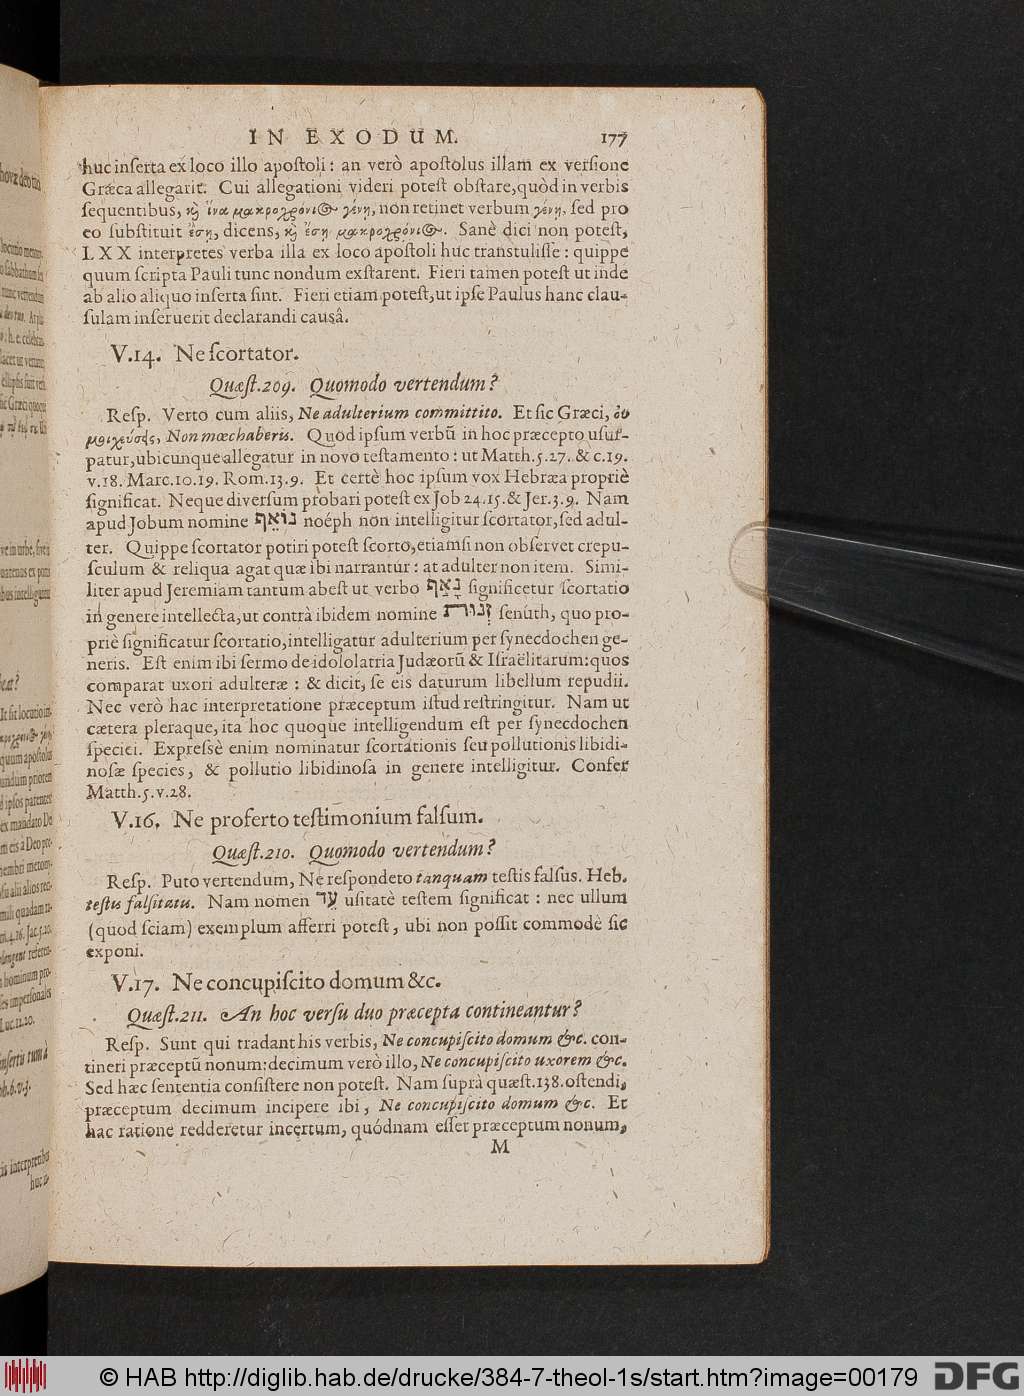 IN EXODUM. 177
huc inſerta ex loco illo apoſtoli: an verò apoſtolus illam ex verſione
Græca allegarit. Cui allegationi videri poteſt obſtare, quòd in verbis
ſequentibus, καὶ ἵνα μακροχρόνιος γένῃ, non retinet verbum γένῃ, ſed pro
eo ſubſtituit ἔσῃ, dicens, καὶ ἔσῃ μακροχρόνιος. Sanè dici non poteſt,
LXX interpretes verba illa ex loco apoſtoli huc tranſtuliſſe: quippe
quum ſcripta Pauli tunc nondum exſtarent. Fieri tamen poteſt ut inde
ab alio aliquo inſerta ſint. Fieri etiam poteſt, ut ipſe Paulus hanc clau-
ſulam inſeruerit declarandi causâ.
V.14. Ne ſcortator.
Quæſt.209. Quomodo vertendum?
Reſp. Verto cum aliis, Ne adulterium committito. Et ſic Græci, οὐ
μοιχεύσεις, Non mœchaberis. Quod ipſum verbũ in hoc præcepto uſur-
patur, ubicunque allegatur in novo teſtamento: ut Matth.5.27. & c.19.
v.18. Marc.10.19. Rom.13.9. Et certè hoc ipſum vox Hebræa propriè
ſignificat. Neque diverſum probari poteſt ex Job 24.15. & Jer.3.9. Nam
apud Jobum nomine נוֹאֵף noéph non intelligitur ſcortator, ſed adul-
ter. Quippe ſcortator potiri poteſt ſcorto, etiamſi non obſervet crepu-
ſculum & reliqua agat quæ ibi narrantur: at adulter non item. Simi-
liter apud Jeremiam tantum abeſt ut verbo נָאַף ſignificetur ſcortatio
in genere intellecta, ut contrà ibidem nomine זְנוּת ſenúth, quo pro-
priè ſignificatur ſcortatio, intelligatur adulterium per ſynecdochen ge-
neris. Eſt enim ibi ſermo de idololatria Judæorũ & Iſraëlitarum: quos
comparat uxori adulteræ: & dicit, ſe eis daturum libellum repudii.
Nec verò hac interpretatione præceptum iſtud reſtringitur. Nam ut
cætera pleraque, ita hoc quoque intelligendum eſt per ſynecdochen
ſpeciei. Expreſſè enim nominatur ſcortationis ſeu pollutionis libidi-
noſæ ſpecies, & pollutio libidinoſa in genere intelligitur. Confer
Matth.5.v.28.
V.16. Ne proferto teſtimonium falſum.
Quæſt.210. Quomodo vertendum?
Reſp. Puto vertendum, Ne reſpondeto tanquam teſtis falſus. Heb.
teſtis falſitatis. Nam nomen עֵד uſitatè teſtem ſignificat: nec ullum
(quod ſciam) exemplum afferri poteſt, ubi non poſſit commodè ſic
exponi.
V.17. Ne concupiſcito domum &c.
Quæſt.211. An hoc verſu duo præcepta contineantur?
Reſp. Sunt qui tradant his verbis, Ne concupiſcito domum &c. con-
tineri præceptũ nonum: decimum verò illo, Ne concupiſcito uxorem &c.
Sed hæc ſententia conſiſtere non poteſt. Nam ſuprà quæſt.138. oſtendi,
præceptum decimum incipere ibi, Ne concupiſcito domum &c. Et
hac ratione redderetur incertum, quódnam eſſet præceptum nonum,
M
© HAB http://diglib.hab.de/drucke/384-7-theol-1s/start.htm?image=00179 DFG